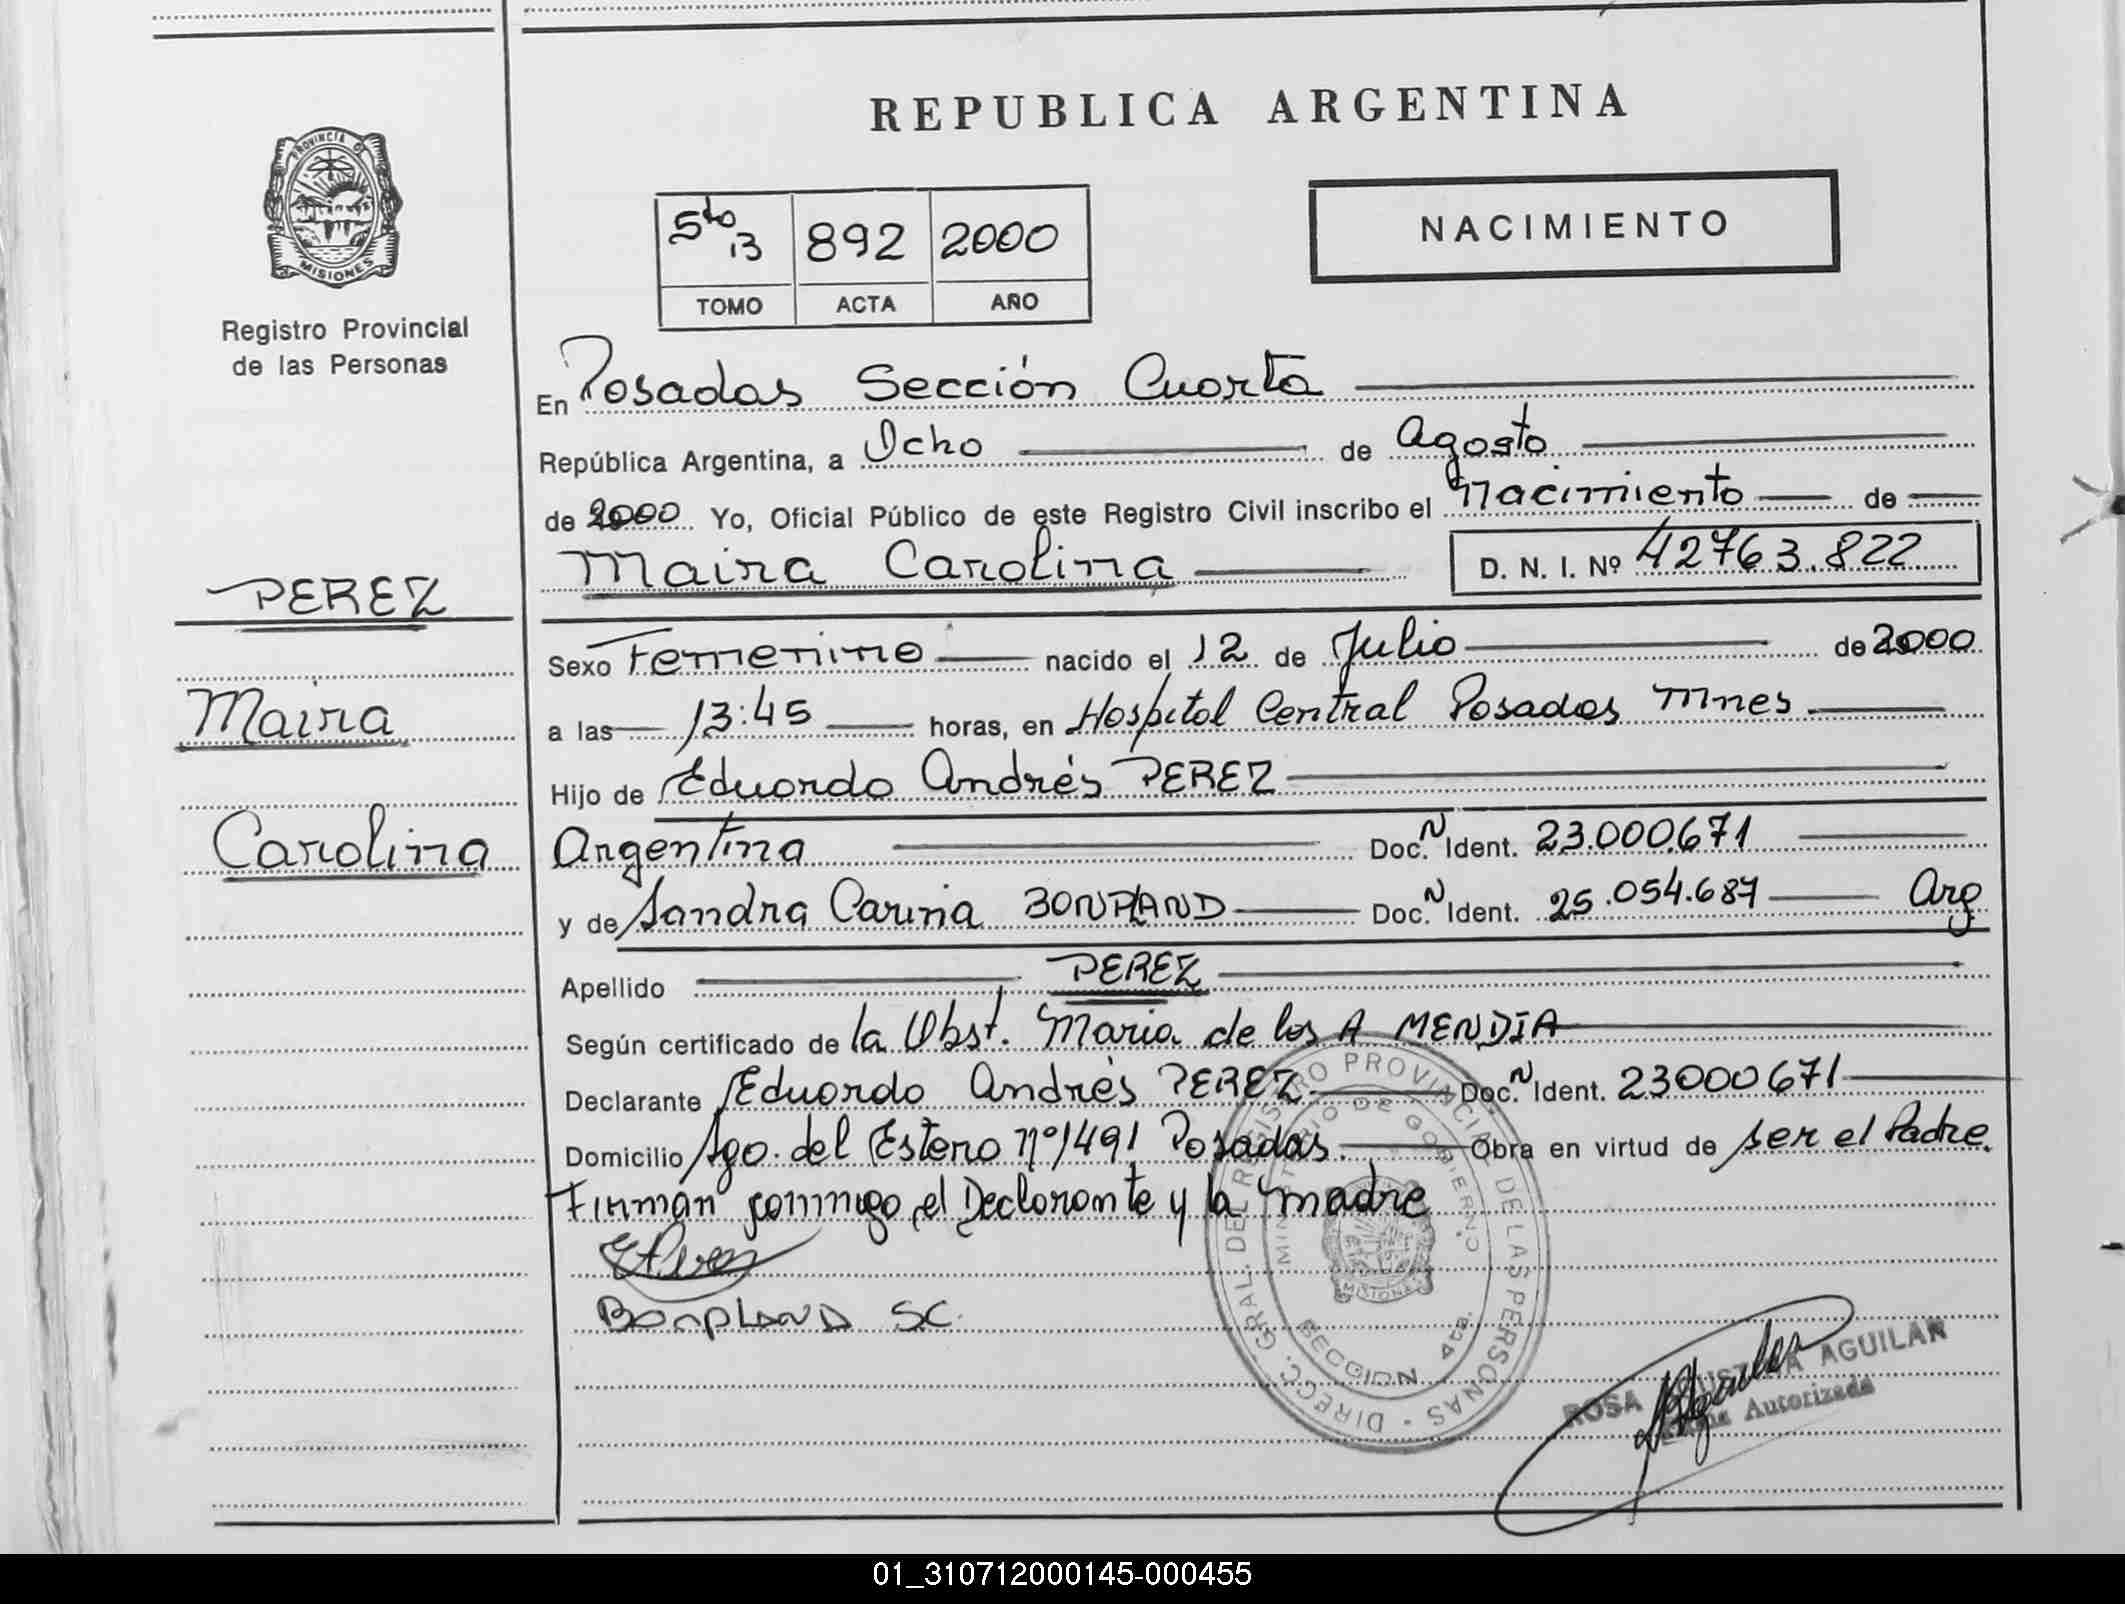 REPUBLICA ARGENTINA
PROVINCIA D
MISIONES
Registro Provincial
de las Personas
5to 13 892 2000
TOMO ACTA AÑO
NACIMIENTO
En Posadas Sección Cuarta
República Argentina, a Ocho de Agosto
de 2000 Yo, Oficial Público de este Registro Civil inscribo el Nacimiento de
Maira Carolina D. N. I. Nº 42763.822
PEREZ
Maira
Carolina
Sexo Femenino nacido el 12 de Julio de 2000
a las 13:45 horas, en Hospital Central Posadas Mnes
Hijo de Eduardo Andrés PEREZ
Argentina Doc. N Ident. 23.000.671
y de Sandra Carina BONPLAND Doc. N Ident. 25.054.687 Arg
Apellido PEREZ
Según certificado de la Obst. Maria de los A MENDIA
Declarante Eduardo Andrés PEREZ Doc. N Ident. 23000671
Domicilio Sgo. del Estero Nº 1491 Posadas. Obra en virtud de ser el Padre.
Firman conmigo el Declarante y la madre
BONPLAND SC.
DIRECC. GRAL. DEL REGISTRO PROVINCIAL DE LAS PERSONAS
MINISTERIO DE GOBIERNO
MISIONES
SECCION 4ta.
ROSA AGUILAR
Autorizada
01_310712000145-000455